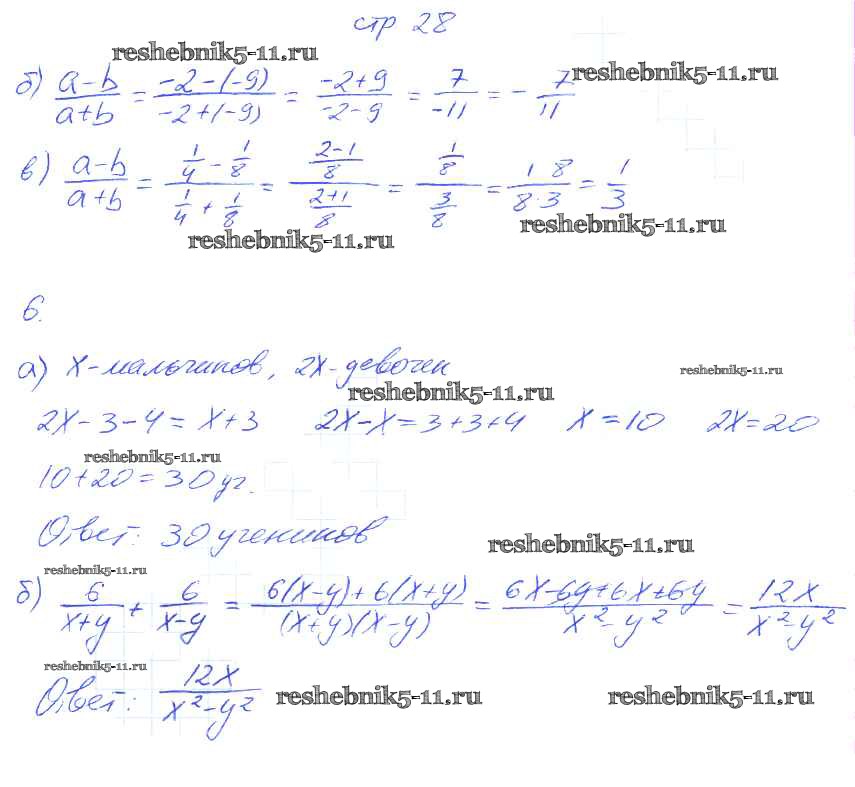 стр 28
reshebnik5-11.ru
reshebnik5-11.ru
б) (a-b)/(a+b) = (-2-(-9))/(-2+(-9)) = (-2+9)/(-2-9) = 7/-11 = - 7/11
в) (a-b)/(a+b) = (1/4 - 1/8)/(1/4 + 1/8) = ((2-1)/8)/((2+1)/8) = (1/8)/(3/8) = (1 8)/(8·3) = 1/3
reshebnik5-11.ru
reshebnik5-11.ru
6.
а) X-мальчиков, 2X-девочек
reshebnik5-11.ru
reshebnik5-11.ru
2X-3-4=X+3 2X-X=3+3+4 X=10 2X=20
reshebnik5-11.ru
10+20=30уч.
Ответ: 30 учеников
reshebnik5-11.ru
reshebnik5-11.ru
б) 6/(x+y) + 6/(x-y) = (6(x-y)+6(x+y))/((x+y)(x-y)) = (6x-6y+6x+6y)/(x²-y²) = 12x/(x²-y²)
reshebnik5-11.ru
Ответ: 12x/(x²-y²)
reshebnik5-11.ru
reshebnik5-11.ru